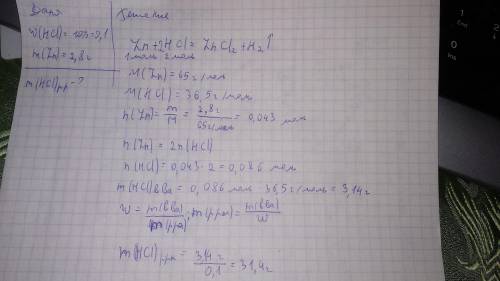 Дано
Решение
w(HCl) = 10% = 0,1
m(Zn) = 2,8 г
m(HCl)pp-?
Zn + 2HCl = ZnCl₂ + H₂↑
1 моль 2 моль
M(Zn) = 65 г/моль
M(HCl) = 36,5 г/моль
n(Zn) = m/M = 2,8 г/65 г/моль = 0,043 моль
n(Zn) = 2n(HCl)
n(HCl) = 0,043 · 2 = 0,086 моль
m(HCl)вва = 0,086 моль · 36,5 г/моль = 3,14 г
w = m(вва)/m(рра); m(рра) = m(вва)/w
m(HCl)рра = 3,14 г/0,1 = 31,4 г